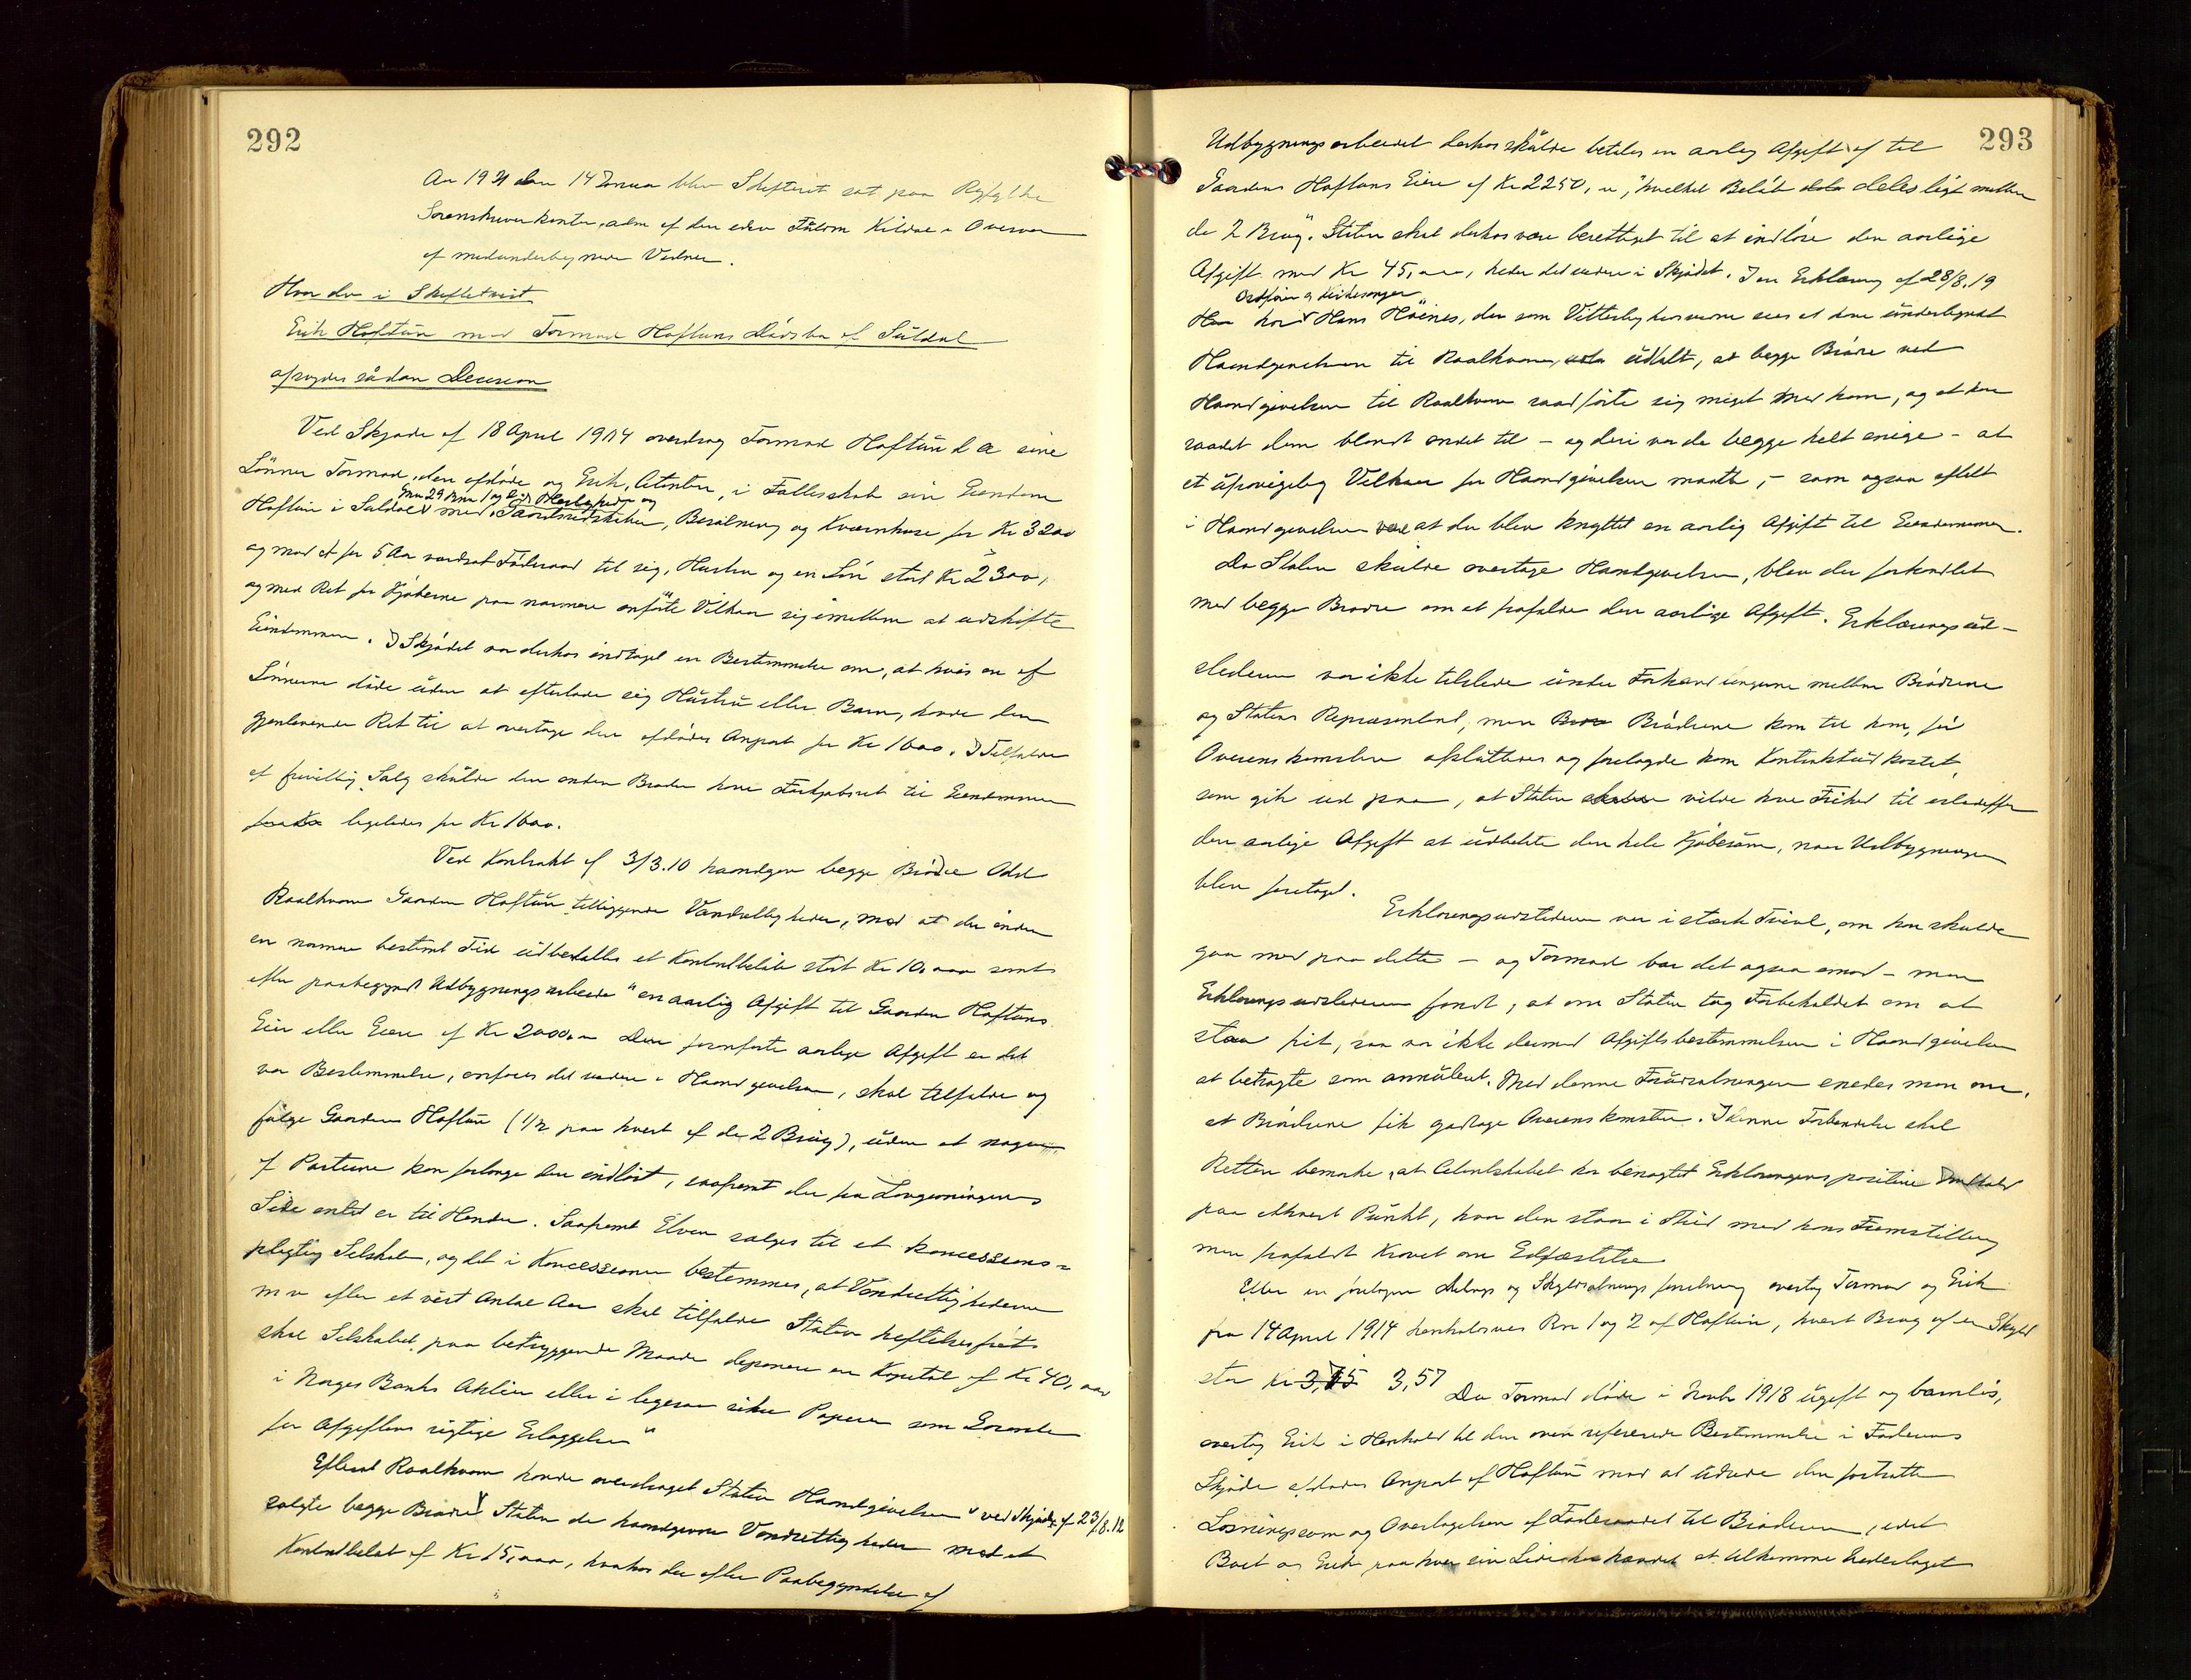 292
Aar 1921 den 14 Januar blev Skifteret sat paa Ryfylke
Sorenskriverkontor, adm af den edsv Fuldm Kildal i Overvær
af medundertegnede Vidner.
Hvor da i Skiftetvist
Erik Hoftun mod Tormod Hoftuns Dödsbo af Suldal
afsagdes sådan Decision
Ved Skjøde af 18 April 1914 overdrog Tormod Hoftun d æ sine
Sönner Tormod, den afdöde og Erik, Citanten, i Fællesskab sin Eiendom
Gnr 29 Bnr 1 og 2
Hoftun i Suldal med Gaardsredskaber, Besætning og Kværnhuse for Kr 3200
og mod et for 5 Aar værdsat Föderaad til sig, Hustru og en Sön stort Kr 2300,
og med Ret for Kjöberne paa nærmere anförte Vilkaar sig imellem at udskifte
Eiendommen. I Skjødet var derhos indtaget en Bestemmelse om, at hvis en af
Sönnerne döde uden at efterlade sig Hustru eller Barn, havde den
gjenlevende Ret til at overtage den afdödes Anpart for Kr 1600. I Tilfælde
af frivillig Salg skulde den anden Broder have Forkjøbsret til Eiendommen
ligeledes for Kr 1600.
Ved Kontrakt af 3/3.10 haandgav begge Brödre Odd
Raalkvam Gaarden Hoftun tilliggende Vandrettigheder, mod at der inden
en nærmere bestemt Tid udbetaltes et Kontantbeløb stort Kr 10,000 samt
efter paabegyndt Udbygningsarbeide "en aarlig Afgift til Gaarden Hoftuns
Eier eller Eiere af Kr 2000,00 Den foranførte aarlige Afgift er det
vor Bestemmelse, anføres det videre i Haandgivelsen, skal tilfalde og
følge Gaarden Hoftun (1/2 paa hvert af de 2 Brug), uden at nogen
af Parterne kan forlange den indløst, saafremt der fra Lovgivningens
Side intet er til Hinder. Saafremt Elven sælges til et koncessions=
pligtig Selskab, og det i Koncessionen bestemmes, at Vandrettighederne
m v efter et vist Antal Aar skal tilfalde Staten heftelsesfrit
skal Selskabet paa betryggende Maade deponere en Kapital af Kr 40,000
i Norges Banks Aktier eller i ligesaa sikre Papirer som Garanti
for Afgiftens rigtige Erlæggelse"
Efterat Raalkvam havde overdraget Staten Haandgivelsen ved Skjøde af 23/8.12
solgte begge Brødre Staten de haandgivne Vandrettigheder mod et
Kontantbeløb af Kr 15,000, hvorhos der efter Paabegyndelse af
293
Udbygningsarbeidet derhos skulde betales en aarlig Afgift af til
Gaarden Hoftuns Eiere af Kr 2250,00, "hvilket Beløb deles ligt mellem
de 2 Brug". Staten skal derhos være berettiget til at indløse den aarlige
Afgift med Kr 45,000, heder det videre i Skjødet. I en Erklæring af 28/8.19
Ordfører og Kirkesanger
har Hans Höines, der som Vitterlighedsvidne sees at have undertegnet
Haandgivelsen til Raalkvam, udtalt, at begge Brödre ved
Haandgivelsen til Raalkvam raadførte sig meget med ham, og at han
raadet dem blandt andet til – og deri var de begge helt enige – at
et ufravigelig Vilkaar for Haandgivelsen maatte, – som ogsaa opfyldt
i Haandgivelsen at der blev knyttet en aarlig Afgift til Eiendommen.
Da Staten skulde overtage Haandgivelsen, blev der forhandlet
med begge Brødre om at frafalde den aarlige Afgift. Erklæringsud-
stederen var ikke tilstede under Forhandlingerne mellem Brødrene
og Statens Repræsentant, men Brødrene kom til ham, før
Overenskomsten afsluttedes og forelagde ham Kontraktudkastet,
som gik ud paa, at Staten vilde have Frihed til istedetfor
den aarlige Afgift at udbetale den hele Kjøbesum, naar Udbygningen
blev foretaget.
Erklæringsudstederen var i stærk Tvivl, om han skulde
gaa med paa dette – og Tormod var det ogsaa imod – men
Erklæringsudstederen fandt, at om Staten tog Forbeholdet om at
staa frit, saa var ikke dermed Afgiftsbestemmelsen i Haandgivelsen
at betragte som annulleret. Med denne Forudsætningen enedes man om,
at Brødrene fik godtage Overenskomsten. I denne Forbindelse skal
Retten bemærke, at Citantskabet har benægtet Erklæringens positive Indhold
paa ethvert Punkt, hvor den staar i Strid med hans Fremstilling
men frafaldt Kravet om Edfæstelse
Efter en foretagen Delings og Skyldsætningsforretning overtog Tormod og Erik
fra 14 April 1914 henholdsvis Bnr 1 og 2 af Hoftun, hvert Brug af en Skyld
stor 3,57
Da Tormod døde i 1918 ugift og barnløs,
overtog Erik i Henhold til den oven refererede Bestemmelse i Faderens
Skjøde afdødes Anpart af Hoftun mod at udrede den fastsatte
Løsningssum og Overtagelsen af Føderaadet til Broderen, idet
Boet og Erik paa hver sin Side hævdet at tilkomme Vederlaget